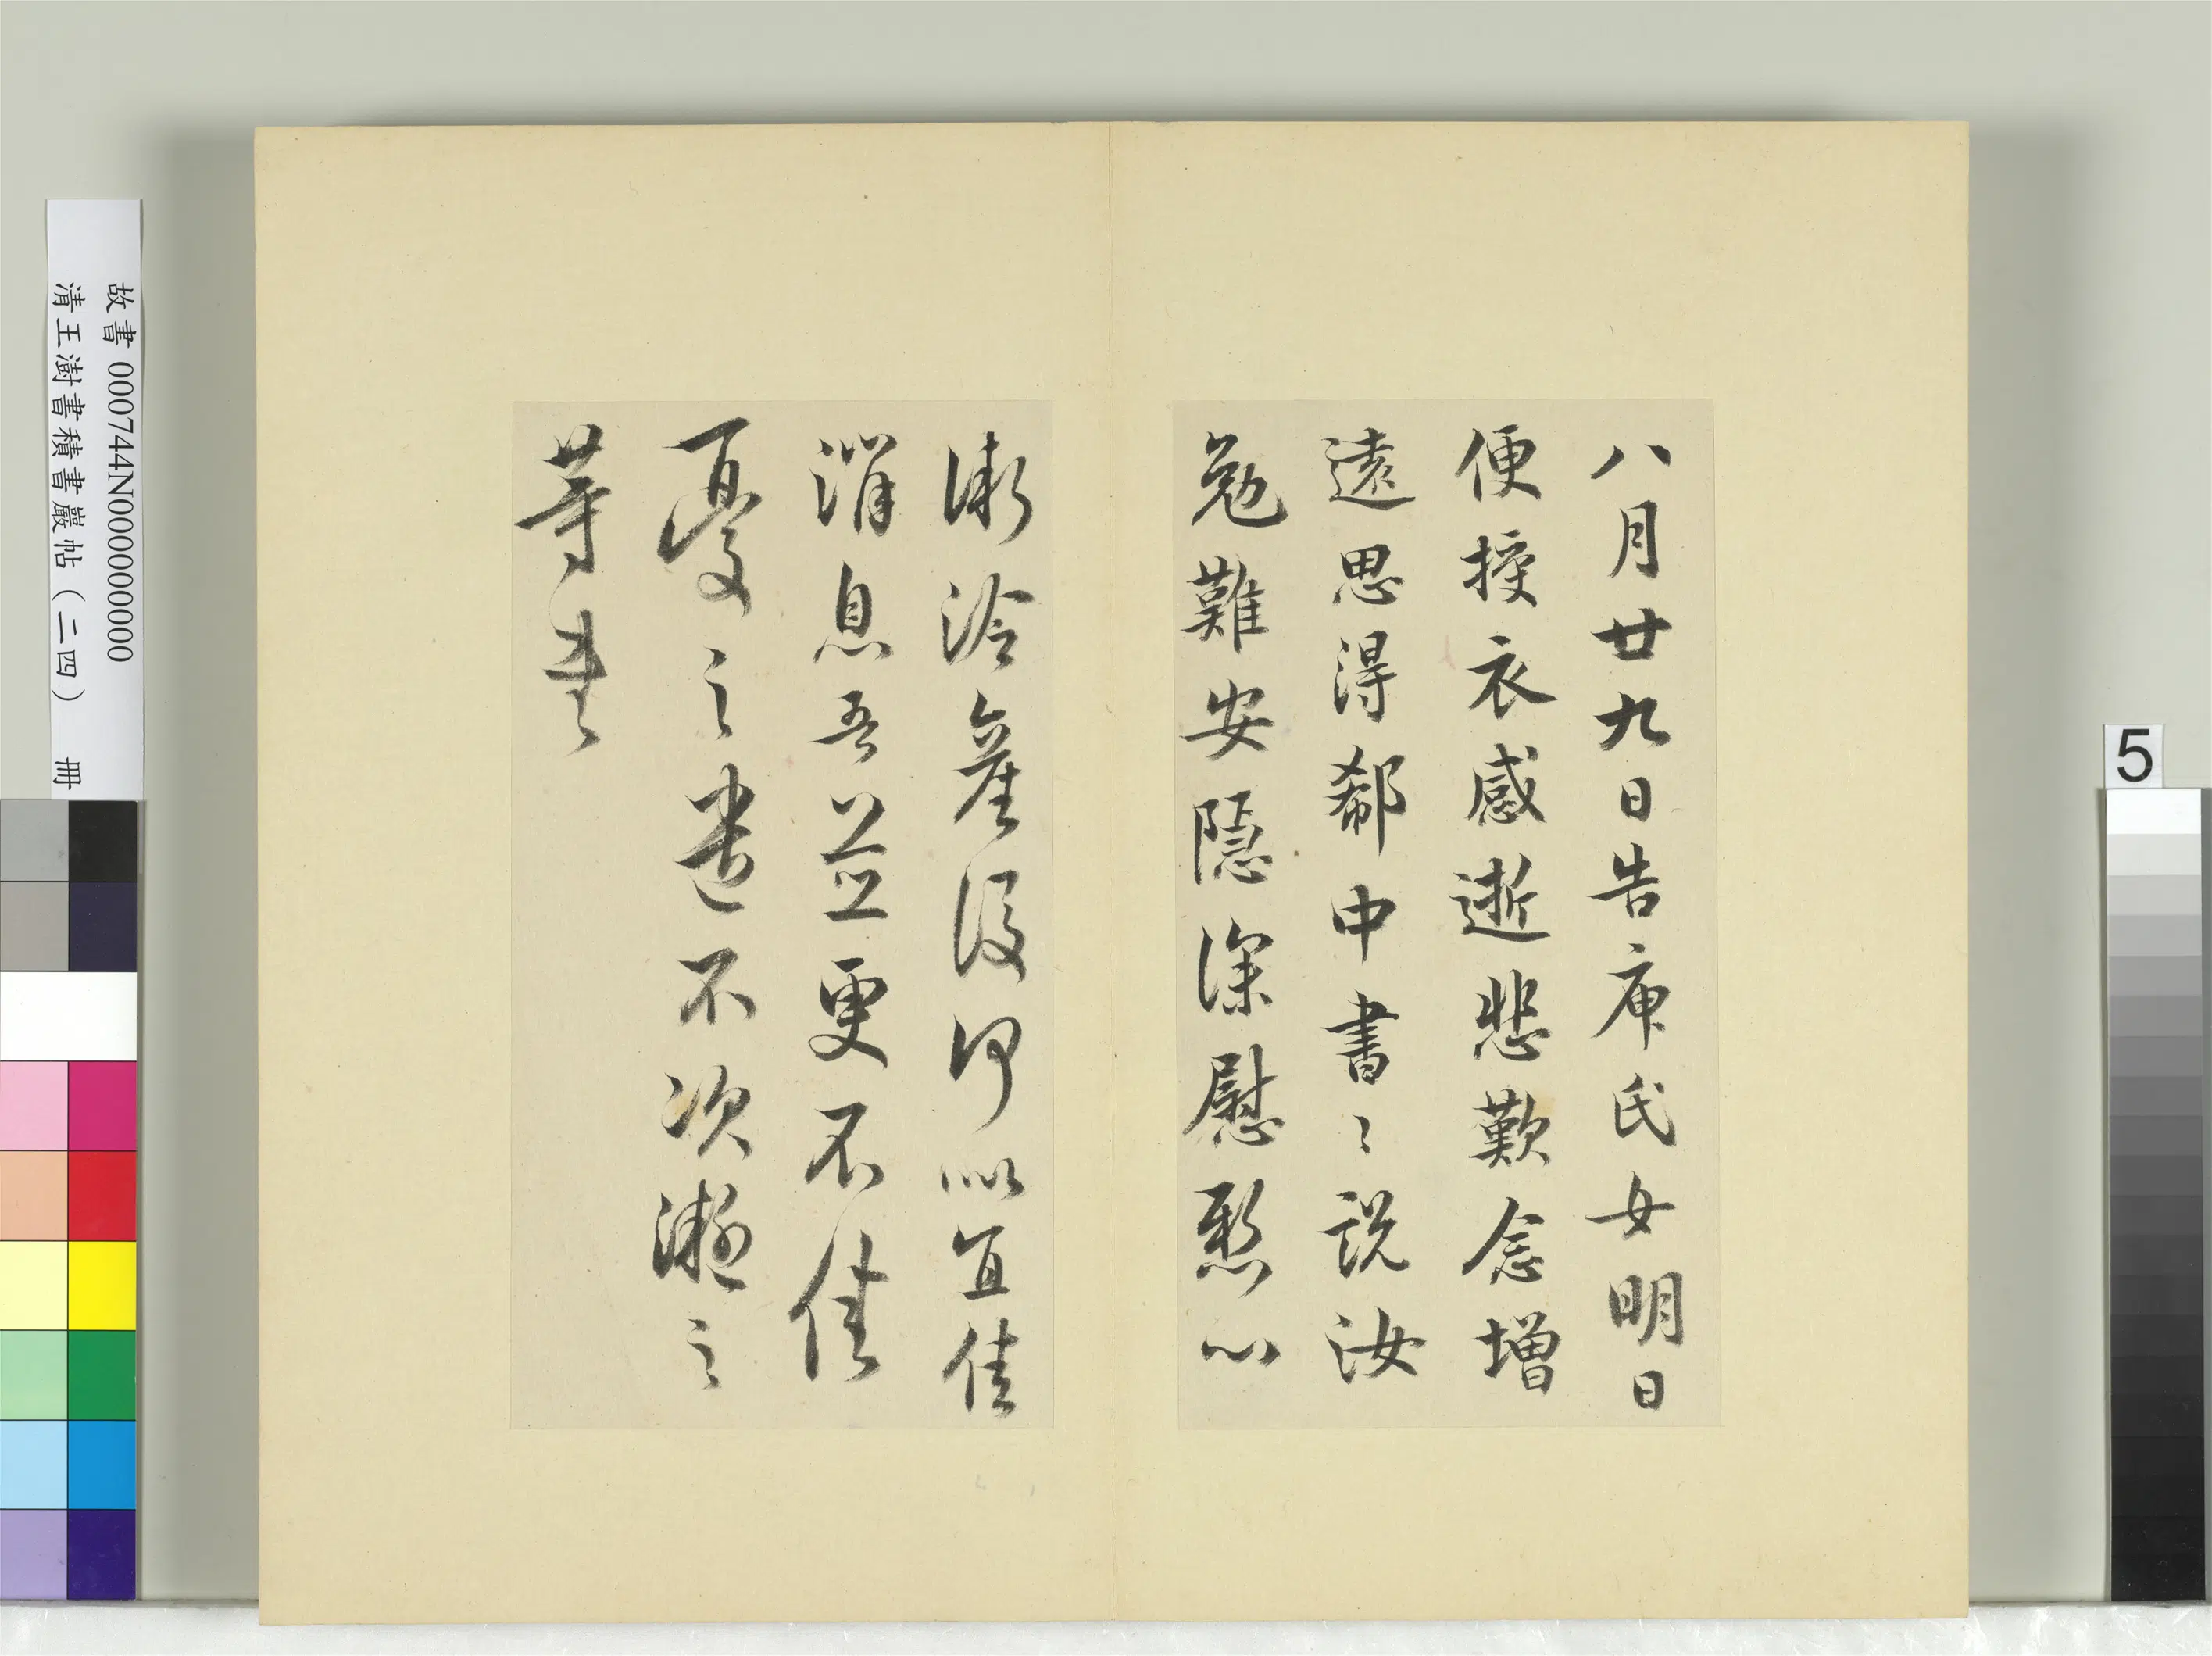 八月廿九日告庾氏女明日
便授衣感逝悲歎念增
遠思得郗中書々說汝
勉難安隱深慰懸心
漸冷產後何似宜佳
消息吾並更不佳
憂之遣不次凝之
等書
故書 000744N000000000
清王澍書積書巖帖（二四） 冊
5